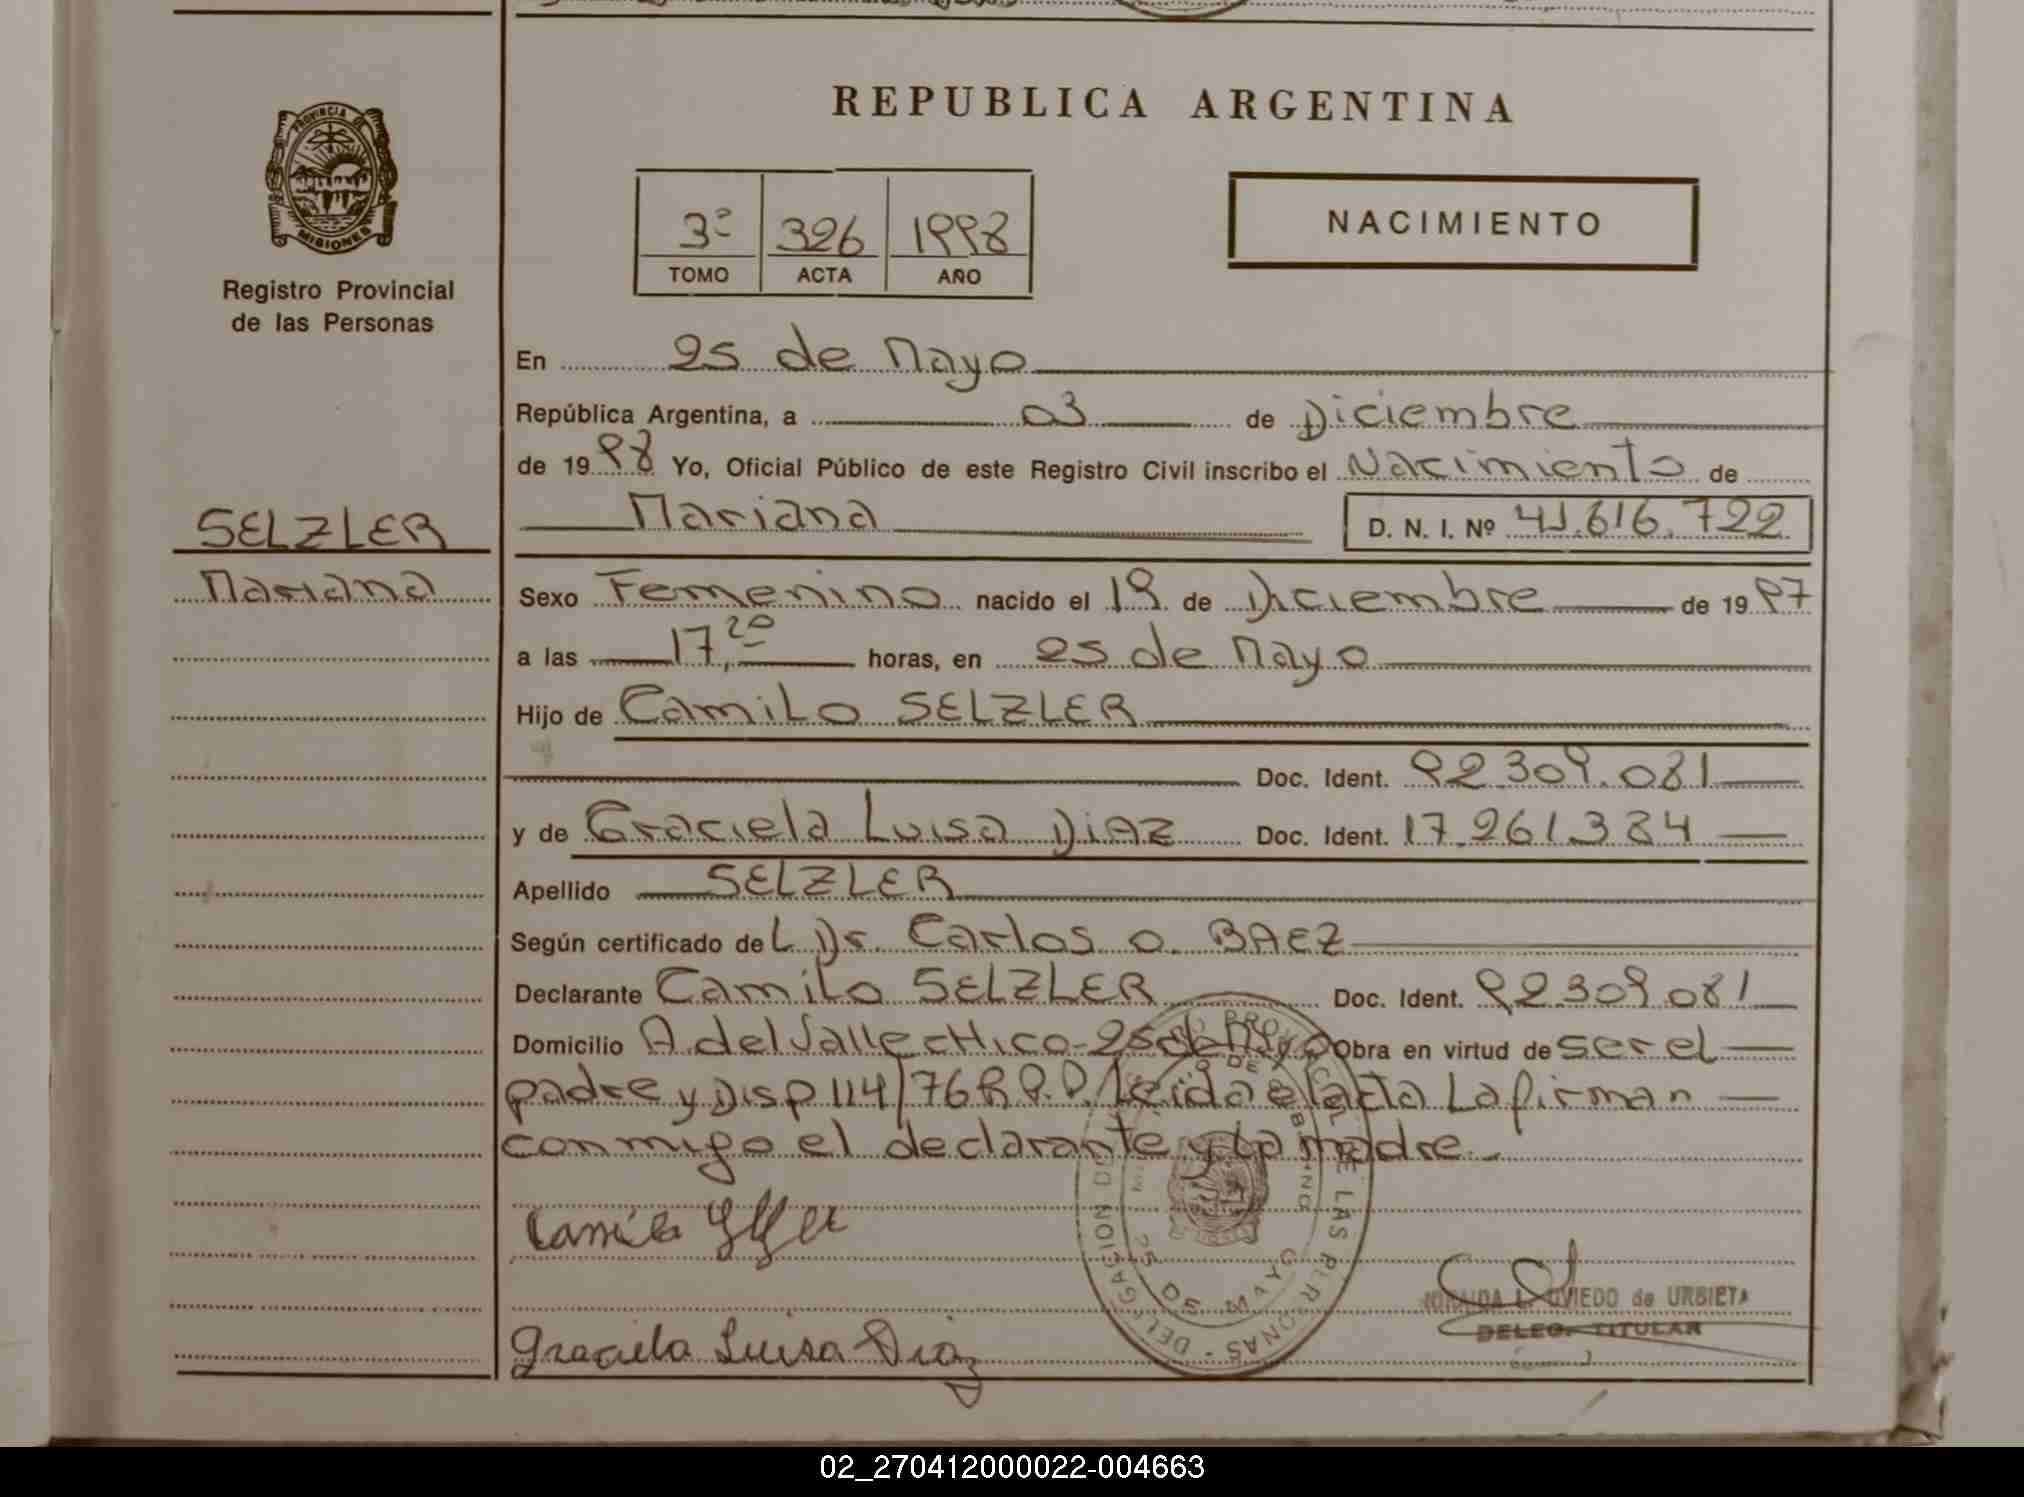 REPUBLICA ARGENTINA
PROVINCIA DE
MISIONES
Registro Provincial
de las Personas
3º 326 1998
TOMO ACTA AÑO
NACIMIENTO
En 25 de Mayo
República Argentina, a 03 de Diciembre
de 1998 Yo, Oficial Público de este Registro Civil inscribo el Nacimiento de
Mariana D. N. I. Nº 41.616.722
SELZLER
Mariana
Sexo Femenino nacido el 19 de Diciembre de 1997
a las 17,20 horas, en 25 de Mayo
Hijo de Camilo SELZLER
Doc. Ident. 92.309.081
y de Graciela Luisa DiAZ Doc. Ident. 17.261.384
Apellido SELZLER
Según certificado del Dr. Carlos O. BAEZ
Declarante Camilo SELZLER Doc. Ident. 92.309.081
Domicilio A. del Valle cHico-25 de Mayo Obra en virtud de ser el
padre y Disp 114/76 R.P.P. Leida el acta La firman
conmigo el declarante y la madre.
Camilo
Graciela Luisa Diaz
OVIEDO de URBIETA
DELEG. TITULAR
02_270412000022-004663